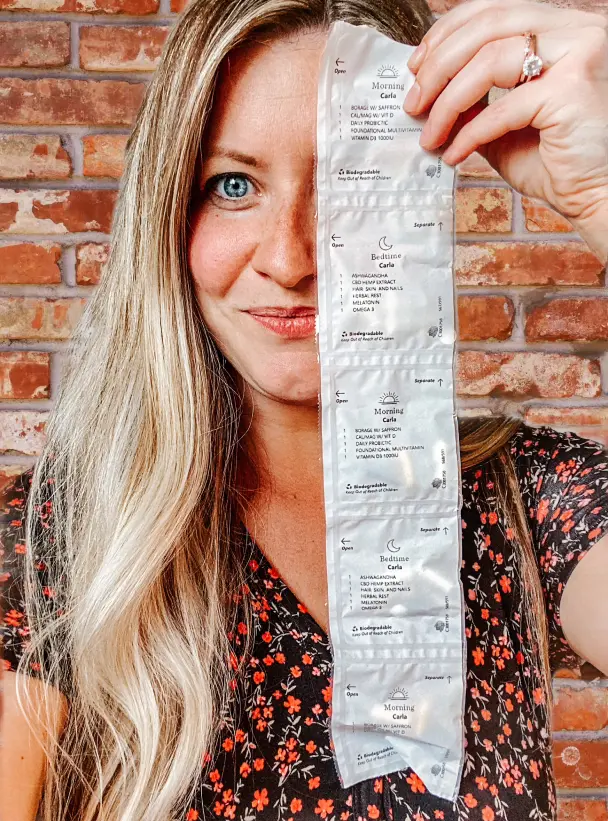 Open
Morning
Carla
1 BORAGE W/ SAFFRON
1 CAL/MAG W/ VIT D
1 DAILY PROBIOTIC
1 FOUNDATIONAL MULTIVITAMIN
1 VITAMIN D3 1000IU
Biodegradable
Keep Out of Reach of Children
Separate
Open
Bedtime
Carla
1 ASHWAGANDHA
1 CBD HEMP EXTRACT
1 HAIR SKIN AND NAILS
1 HERBAL REST
1 MELATONIN
1 OMEGA 3
Biodegradable
Keep Out of Reach of Children
Separate
Open
Morning
Carla
1 BORAGE W/ SAFFRON
1 CAL/MAG W/ VIT D
1 DAILY PROBIOTIC
1 FOUNDATIONAL MULTIVITAMIN
1 VITAMIN D3 1000IU
Biodegradable
Keep Out of Reach of Children
Separate
Open
Bedtime
Carla
1 ASHWAGANDHA
1 CBD HEMP EXTRACT
1 HAIR SKIN AND NAILS
1 HERBAL REST
1 MELATONIN
1 OMEGA 3
Biodegradable
Keep Out of Reach of Children
Separate
Open
Morning
Carla
BORAGE W/ SAFFRON
VIT D
Biodegradable
Keep Out of Reach of Children